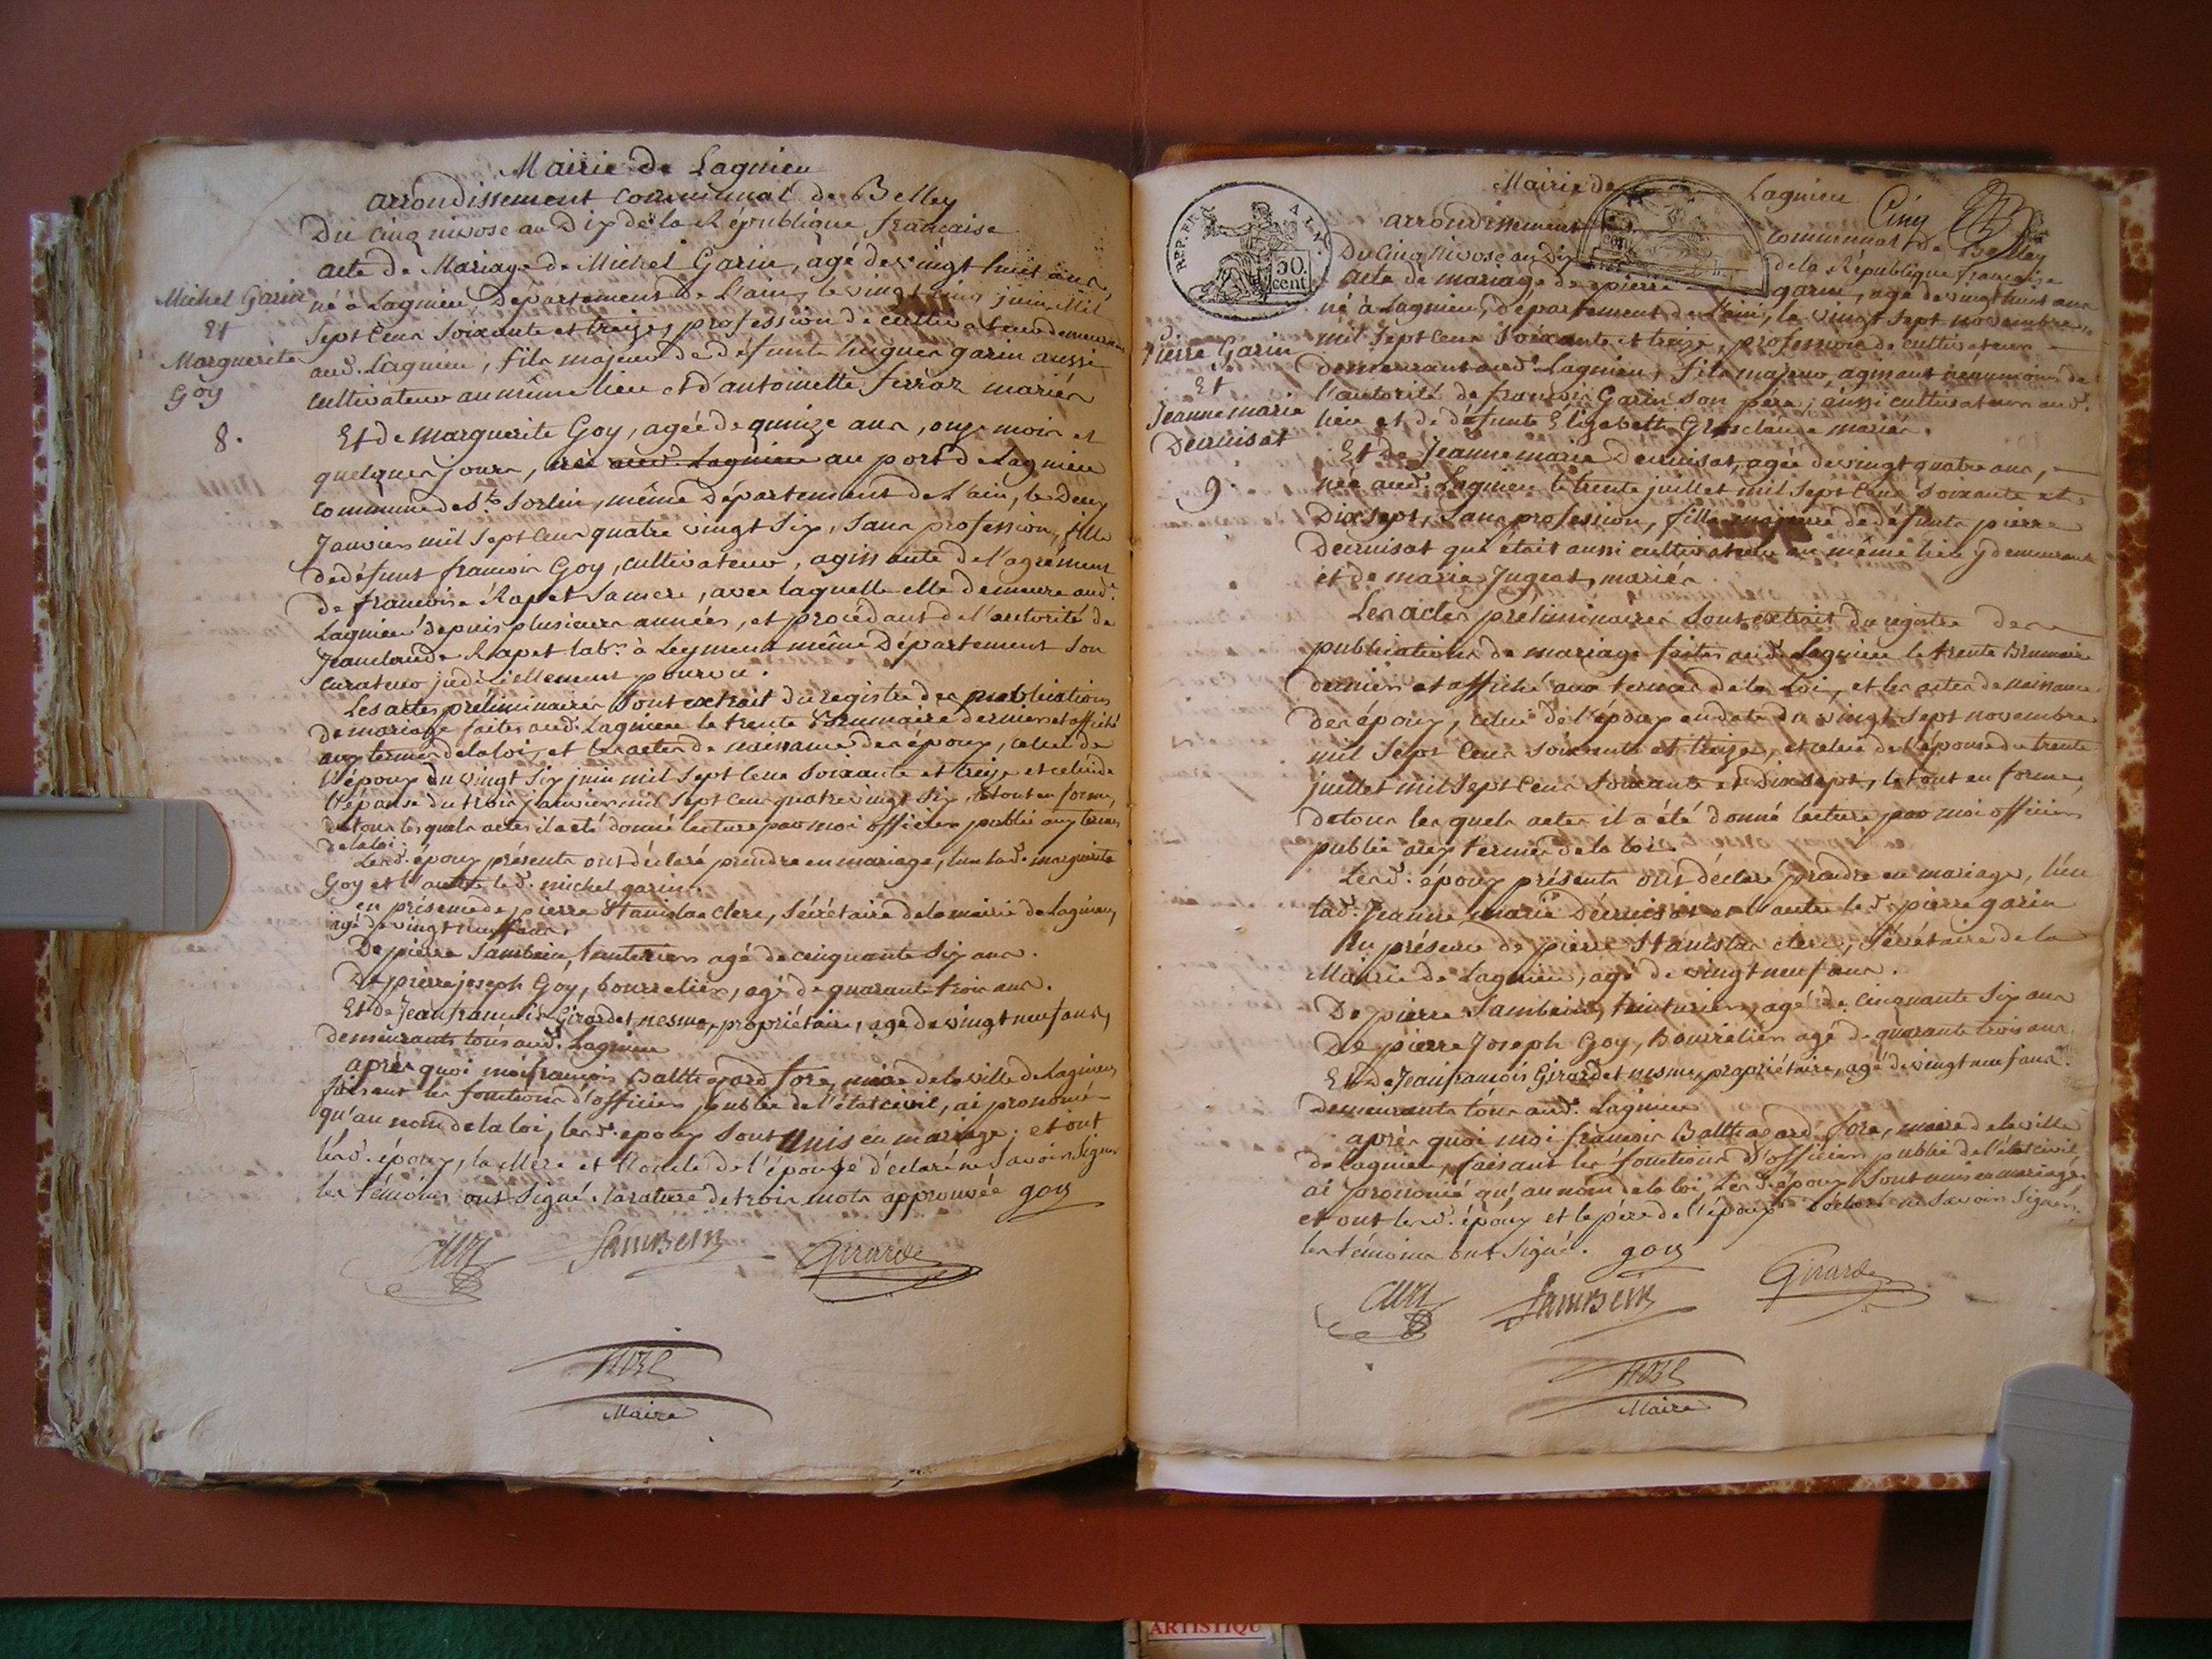 Mairie de Lagnieu
arrondissement communal de Belley
Du cinq nivose an Dix de la République française
acte de Mariage de Michel Garin, agé de vingt huit ans,
né à Lagnieu, Département de L'ain, le vingt cinq juin Mil
Sept Cens Soixante et treize, profession de cultivateur demeurant
aud. Lagnieu, fils majeur de défunts hugues garin aussi
cultivateur au même lieu et d'antoinette ferraz mariés
Michel Garin
Et
Marguerite
Goy
8.
Et de Marguerite Goy, agée de quinze ans, onze mois et
quelques jours, née aud. Lagnieu au port de Lagnieu
commune de St. Sorlin, même Département de L'ain, le deux
Janvier mil sept cens quatre vingt Six, sans profession, fille
de défunt francois Goy, cultivateur, agissante de l'agrément
de francoise Rapet sa mere, avec laquelle elle demeure aud.
Lagnieu depuis plusieurs années, et procédant de l'autorité de
Jeanclaude Rapet labr. à Leyment même Département Son
curateur judiciellement pourvu.
Les actes préliminaires Sont extrait du registre des publications
de mariage faites aud. Lagnieu le trente Brumaire dernier et affiché
aux termes de la loi, et les actes de naissance des époux, celui de
l'époux du vingt Six juin mil Sept Cens Soixante et treize et celui de
l'épouse du trois janvier mil Sept Cens quatre vingt Six, le tout en forme,
de tous lesquels actes il a été donné lecture par moi officier public aux termes
de la loi.
Lesd. époux présents ont déclaré prendre en mariage, l'un lad. marguerite
Goy et l'autre led. michel garin.
en présence de pierre Stanislas Clerc, Sécrétaire de la mairie de Lagnieu,
agé de vingt neuf ans.
De pierre Sambein, teinturier agé de cinquante Six ans.
De pierre joseph Goy, bourrelier, agé de quarante trois ans.
Et de Jean francois Girardet nesme, propriétaire, agé de vingt neuf ans,
demeurants tous aud. Lagnieu
après quoi moi francois Balthazard Sore, maire de la ville de Lagnieu,
faisant les fonctions d'officier public de l'état civil, ai prononcé
qu'au nom de la loi, lesd. epoux Sont Unis en mariage; et ont
lesd. époux, la Mère et l'oncle de l'épouse déclaré ne Savoir Signer
les témoins ont Signé. la rature de trois mots approuvée goy
Clerc Sambein Girardet
Sore
Maire
RÉP. FRA.
50.
cent
Mairie de Lagnieu Cinq
arrondissement communal de Belley
Du Cinq Nivose an Dix de la République française
acte de mariage de pierre garin, agé de vingt huit ans
né à Lagnieu, département de l'ain, le vingt Sept novembre
mil Sept Cens Soixante et treize, profession de cultivateur
demeurant aud. Lagnieu, fils majeur, agissant neanmoins de
l'autorité de francois Garin son père, aussi cultivateur aud.
lieu et de défunte Elizabeth Grosclaude mariés.
Pierre Garin
Et
Jeanne marie
Decruisat
9
Et de Jeanne marie Decruisat, agée de vingt quatre ans,
née aud. Lagnieu le trente juillet mil Sept Cens Soixante et
Dix sept, Sans profession, fille majeure de défunts pierre
Decruisat qui était aussi cultivateur au même lieu y demeurant
et de marie Jugeat, mariés.
Les actes preliminaires Sont extrait du registre des
publications de mariage faites aud. Lagnieu le trente Brumaire
dernier et affiché aux termes de la Loi, et les actes de naissance
des époux, celui de l'époux en date du vingt Sept novembre
mil Sept Cens Soixante et treize, et celui de l'épouse du trente
juillet mil Sept Cens Soixante et Dix Sept, le tout en forme,
de tous les quels actes il a été donné lecture par moi officier
public aux termes de la loi.
Lesd. époux présents ont déclaré prendre en mariage, l'un
lad. Jeanne marie Decruisat et l'autre led. pierre garin
En présence de pierre Stanislas clerc, Sécrétaire de la
Mairie de Lagnieu, agé de vingt neuf ans.
De pierre Sambein, teinturier, agé de Cinquante Six ans
De pierre Joseph Goy, Bourrelier agé de quarante trois ans.
Et de Jean francois Girardet nesme, propriétaire, agé de vingt neuf ans.
demeurants tous aud. Lagnieu
après quoi moi francois Balthazard Sore, maire de la ville
de Lagnieu, faisant les fonctions d'officier public de l'état civil
ai prononcé qu'au nom de la loi Les d. époux Sont unis en mariage
et ont lesd. époux et le père de l'époux déclaré ne Savoir Signer.
les témoins ont Signé. goy
Clerc Sambein Girardet
Sore
Maire
ARTISTIQU